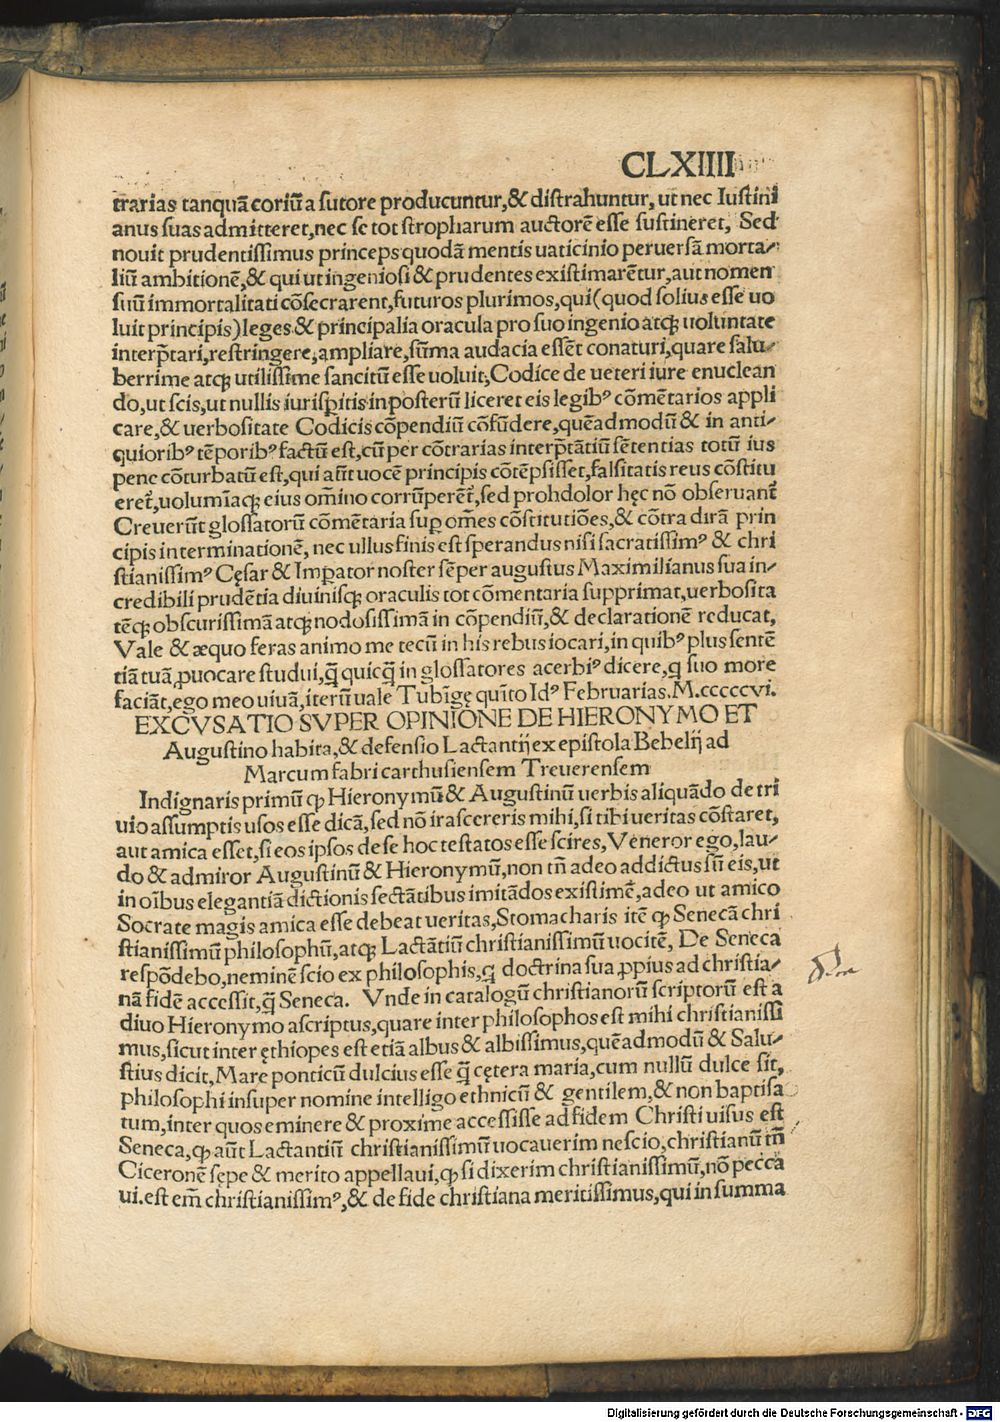 CLXIIII
trarias tanquã coriũ a sutore producuntur,& distrahuntur, ut nec Iustini
anus suas admitteret,nec se tot stropharum auctorẽ esse sustineret, Sed
nouit prudentissimus princeps quodã mentis uaticinio peruersã morta-
liũ ambitionẽ,& qui ut ingeniosi & prudentes existimarẽtur,aut nomen
suũ immortalitati cõsecrarent,futuros plurimos,qui(quod solius esse uo
luit principis)leges & principalia oracula pro suo ingenio atq; uoluntate
interp̃tari,restringere,ampliare,sũma audacia essẽt conaturi,quare salu-
berrime atq; utilissime sancitũ esse uoluit,Codice de ueteri iure enuclean
do,ut scis,ut nullis iurisp̃itis in posterũ liceret eis legibꝰ cõmẽtarios appli
care,& uerbositate Codicis cõpendiũ cõfũdere,quẽadmodũ & in anti-
quioribꝰ tẽporibꝰ factũ est,cũ per cõtrarias interp̃tãtiũ sẽtentias totũ ius
pene cõturbatũ est,qui aũt uocẽ principis cõtẽpsisset,falsitatis reus cõstitu
eret᷑,uolumĩaq; eius om̃ino corrũperẽt᷑,sed prohdolor hęc nõ obseruant᷑
Creuerũt glossatorũ cõmẽtaria sup om̃es cõstitutiões,& cõtra dirã prin
cipis interminationẽ, nec ullus finis est sperandus nisi sacratissimꝰ & chri
stianissimꝰ Cęsar & Imꝑator noster sẽper augustus Maximilianus sua in-
credibili prudẽtia diuinisq; oraculis tot cõmentaria supprimat,uerbosita
tẽq; obscurissimã atq; nodosissimã in cõpendiũ,& declarationẽ reducat,
Vale & æquo feras animo me tecũ in his rebus iocari,in quibꝰ plus sentẽ
tiã tuã ꝓuocare studui,q̃ quicq̃ in glossatores acerbiꝰ dicere,q suo more
faciãt,ego meo uiuã,iterũ uale Tubĩgę quĩto Idꝰ Februarias.M.cccccvi.
EXCVSATIO SVPER OPINIONE DE HIERONYMO ET
Augustino habita,& defensio Lactantij ex epistola Bebelij ad
Marcum fabri carthusiensem Treuerensem
Indignaris primũ ꝙ Hieronymũ & Augustinũ uerbis aliquãdo de tri
uio assumptis usos esse dicã,sed nõ irascereris mihi,si tibi ueritas cõstaret,
aut amica esset,si eos ipsos de se hoc testatos esse scires,Veneror ego,lau-
do & admiror Augustinũ & Hieronymũ,non tñ adeo addictus sũ eis,ut
in oĩbus elegantiã dictionis sectãtibus imitãdos existimẽ,adeo ut amico
Socrate magis amica esse debeat ueritas,Stomacharis itẽ ꝙ Senecã chri
stianissimũ philosophũ,atq; Lactãtiũ christianissimũ uocitẽ, De Seneca
respõdebo,neminẽ scio ex philosophis,q doctrina sua ꝓpius ad christia-
nã fidẽ accessit,q̃ Seneca. Vnde in catalogũ christianorũ scriptorũ est a
diuo Hieronymo ascriptus,quare inter philosophos est mihi christianissi
mus,sicut inter ęthiopes est etiã albus & albissimus,quẽadmodũ & Salu-
stius dicit,Mare ponticũ dulcius esse q̃ cętera maria,cum nullũ dulce sit,
philosophi insuper nomine intelligo ethnicũ & gentilem,& non baptisa
tum,inter quos eminere & proxime accessisse ad fidem Christi uisus est
Seneca,ꝙ aũt Lactantiũ christianissimũ uocauerim nescio,christianũ tñ
Ciceronẽ sępe & merito appellaui,ꝙ si dixerim christianissimũ,nõ pecca
ui.est em̃ christianissimꝰ,& de fide christiana meritissimus,qui in summa
Digitalisierung gefördert durch die Deutsche Forschungsgemeinschaft - DFG